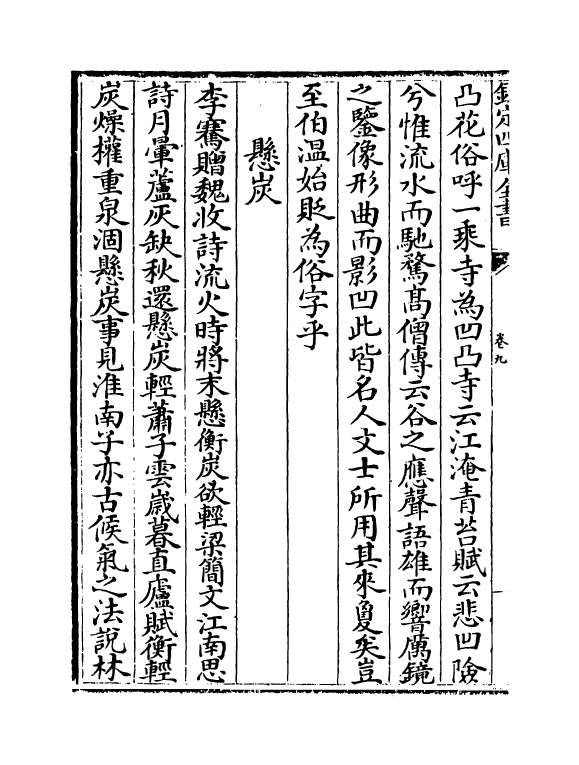 欽定四庫全書
卷九
凸花俗呼一乘寺為凹凸寺云江淹青苔賦云悲凹險
兮惟流水而馳騖髙僧傳云谷之應聲語雄而響厲鏡
之鑒像形曲而影凹此皆名人文士所用其來夐矣豈
至伯温始貶為俗字乎
懸炭
李騫贈魏收詩流火時將末懸衡炭欲輕梁簡文江南思
詩月暈蘆灰缺秋還懸炭輕蕭子雲嵗暮直廬賦衡輕
炭燥權重泉涸懸炭事見淮南子亦古候氣之法說林